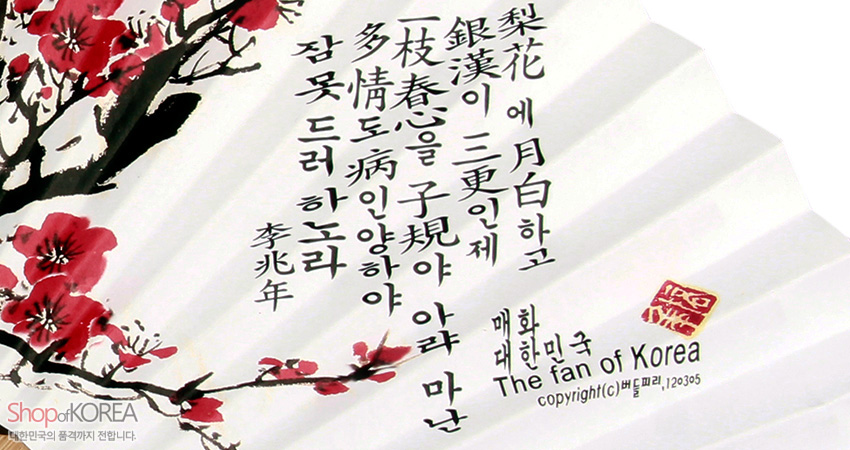 梨花에 月白하고
銀漢이 三更인제
一枝春心을 子規야 아랴 마난
多情도 病인양하야
잠 못 드러 하노라
李兆年
매화
대한민국
The fan of Korea
copyright(c)버들피리,120305
ShopofKOREA
대한민국의 품격까지 전합니다.